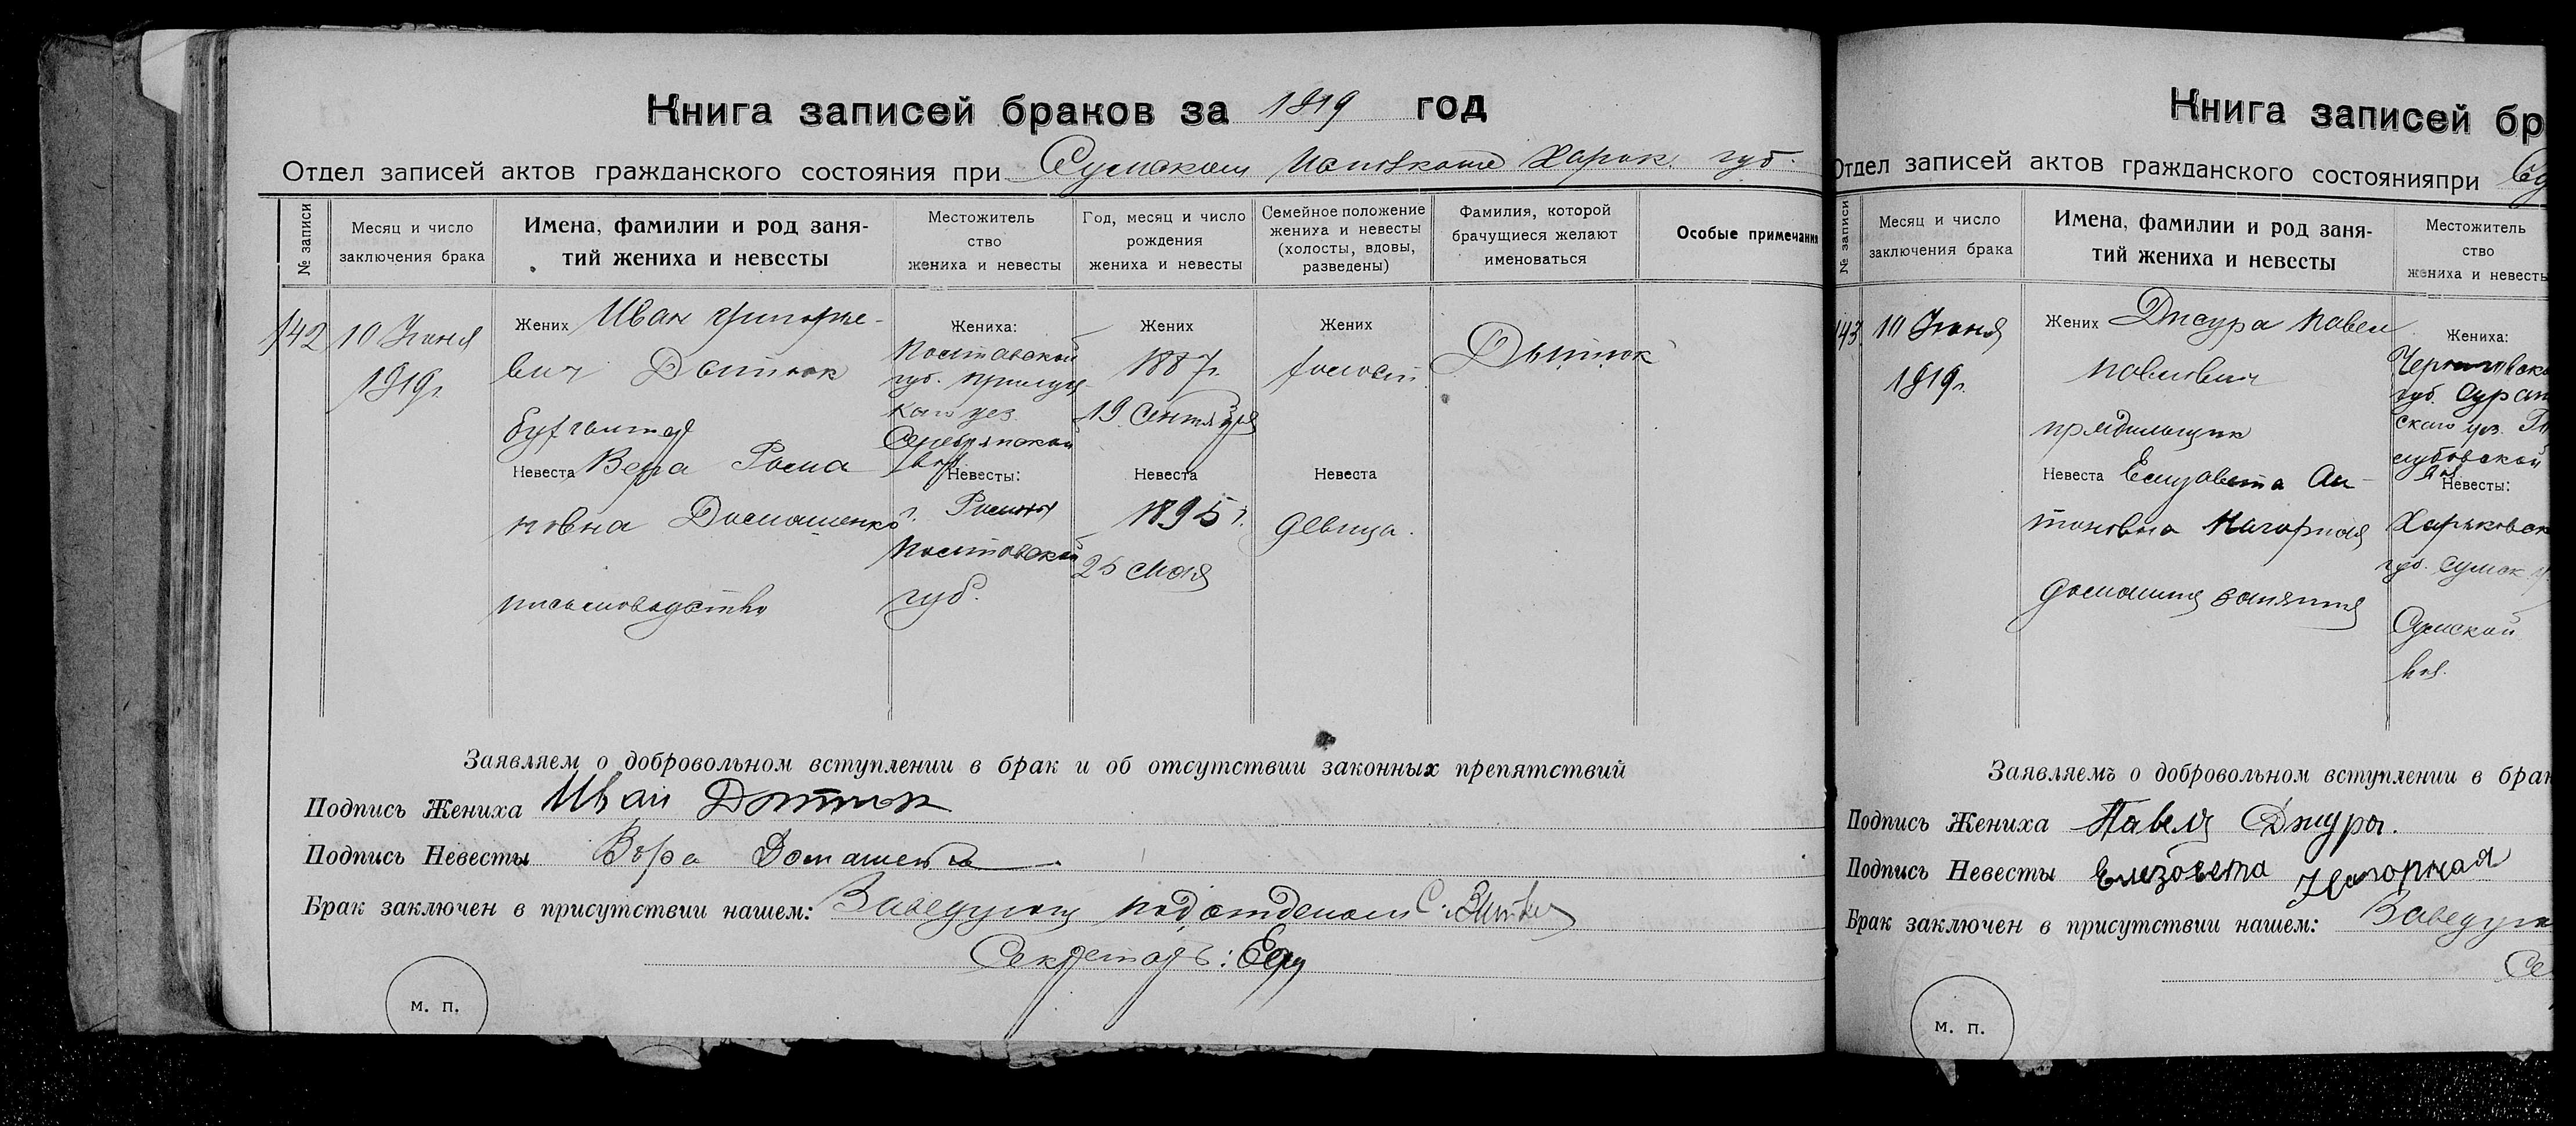 Книга записей браков за 1919 год
Отдел записей актов гражданского состояния при Сумском Исполкоме Харьк. губ.
№ записи
Месяц и число
заключения брака
Имена, фамилии и род заня-
тий жениха и невесты
Местожитель
ство
жениха и невесты
Год, месяц и число
рождения
жениха и невесты
Семейное положение
жениха и невесты
(холосты, вдовы,
разведены)
Фамилия, которой
брачущиеся желают
именоваться
Особые примечания
142
10 Июня
1919 г.
Жених Иван Григорье-
вич
бухгалтер
Невеста Вера Рома
новна Домашенко
письмоводство
Жениха:
Полтавской
губ. Прилуц
кого уез.
Серебрянской
вол.
Невесты:
г. Ромны
Полтавской
губ.
Жених
1887 г.
19 Сентября
Невеста
1895 г.
25 мая
Жених
холост.
Невеста
девица.
Заявляем о добровольном вступлении в брак и об отсутствии законных препятствий
Подпись Жениха Иван
Подпись Невесты Вѣра Домашенко
Брак заключен в присутствии нашем: Заведующ подотделом
Секретарь:
м. п.
Книга записей бр
Отдел записей актов гражданского состоянияпри Су
№ записи
Месяц и число
заключения брака
Имена, фамилии и род заня-
тий жениха и невесты
Местожитель
ство
жениха и невесты
143
10 Июня
1919 г.
Жених Джура Павел
Павлович
прядильщик
Невеста Елизавета Ан-
тоновна Нагорная
домашния занятия
Жениха:
Черниговско
губ. Сураж
ского уез.
вол.
Невесты:
Харьковск
губ. Сумск. у.
Сумской
вол.
Заявляемъ о добровольном вступлении в брак
Подпись Жениха Павел Джура.
Подпись Невесты Елизовета Нагорная
Брак заключен в присутствии нашем: Заведую
Се
м. п.